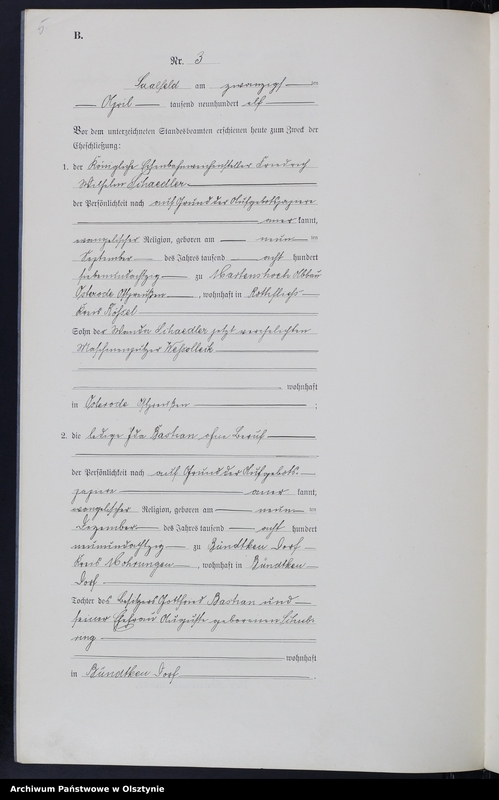 B.
Nr. 3
Saalfeld am zwanzigsten
April tausend neunhundert elf
Vor dem unterzeichneten Standesbeamten erschienen heute zum Zweck der
Eheschließung:
1. der Königliche Eisenbahnweichensteller Friedrich
Wilhelm Schaedler
der Persönlichkeit nach auf Grund der Aufgebotspapiere
aner kannt,
evangelischer Religion, geboren am neunten
September des Jahres tausend acht hundert
siebenundachtzig zu Abbau
Osterode Ostpreußen, wohnhaft in Rothfließ
Kreis Rößel
Sohn der Wanda Schaedler jetzt verehelichten
Maschinenputzer
wohnhaft
in Osterode Ostpreußen ;
2. die ledige Ida Bastian, ohne Beruf
der Persönlichkeit nach auf Grund der Aufgebots-
papiere aner kannt,
evangelischer Religion, geboren am neunten
Dezember des Jahres tausend acht hundert
neunundachtzig zu Bündtken Dorf
Kreis Mohrungen, wohnhaft in Bündtken
Dorf
Tochter des Besitzers Gottfried Bastian und
seiner Ehefrau Auguste geborenen
wohnhaft
in Bündtken Dorf.
Archiwum Państwowe w Olsztynie